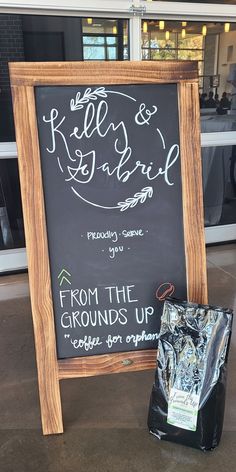 Kelly &
Gabriel
· Proudly · Serve ·
you ·
FROM THE
GROUNDS UP
"coffee for orphans